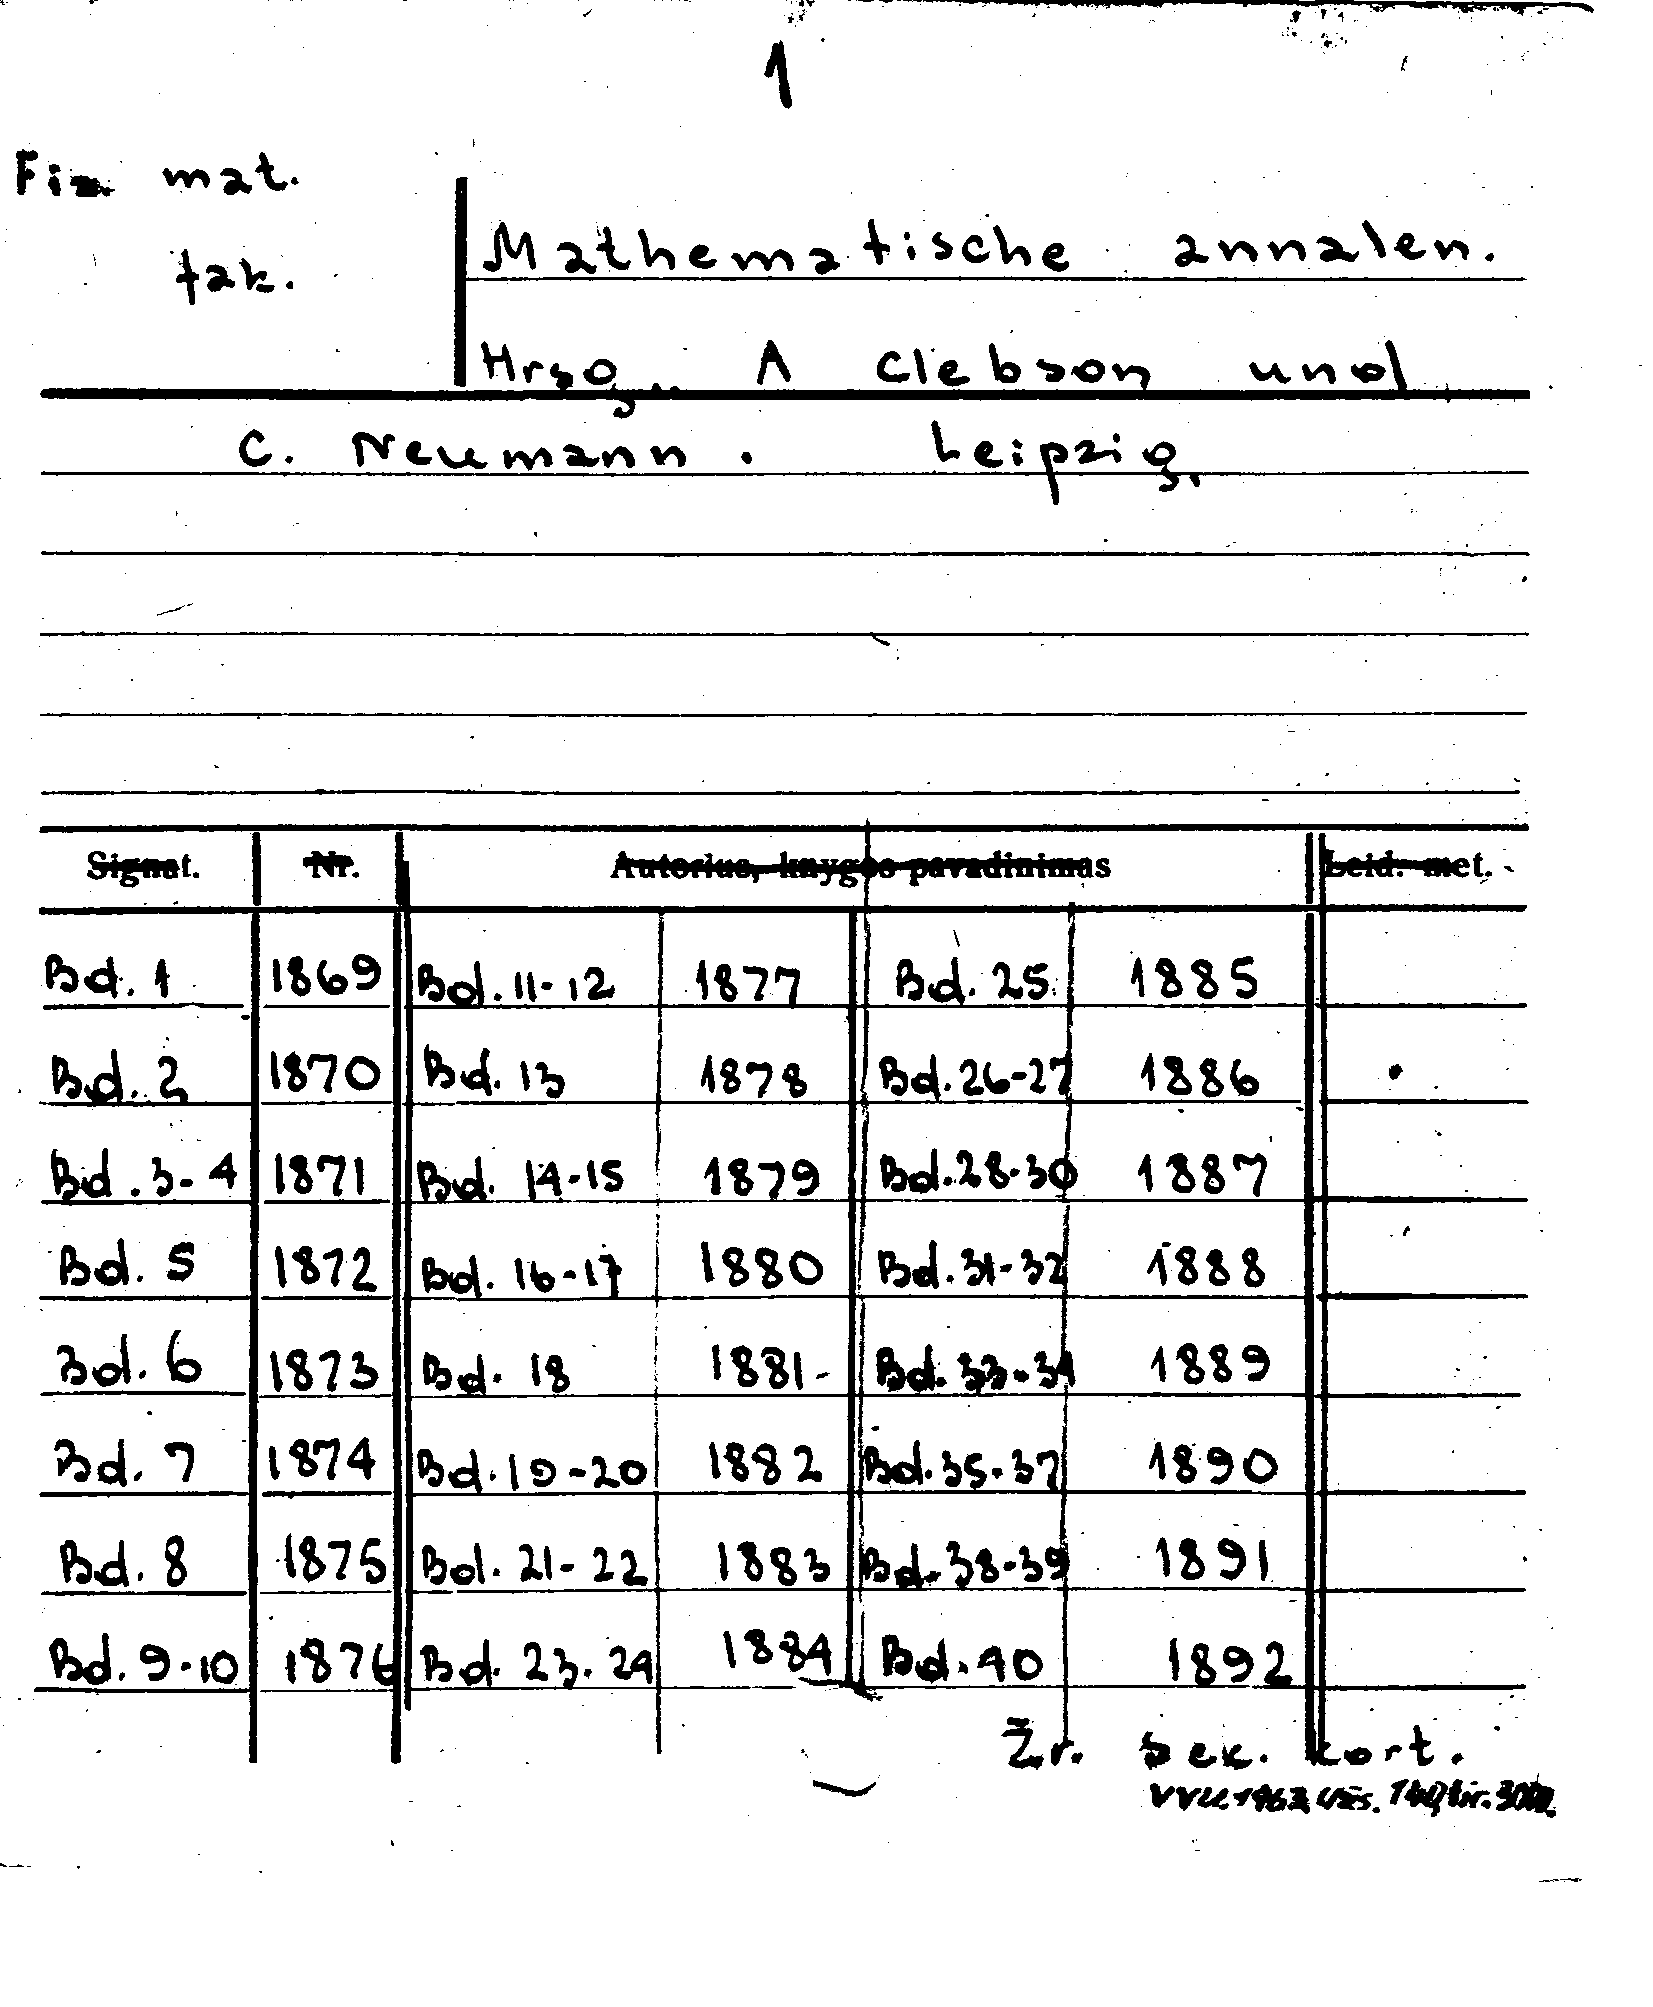 1
Fiz. mat.
fak.
Mathematische annalen.
Hrsg. A Clebson und
C. Neumann. Leipzig.
Signat. Nr. Autorius, knygos pavadinimas Leid. met.
Bd. 1 1869 Bd. 11-12 1877 Bd. 25 1885
Bd. 2 1870 Bd. 13 1878 Bd. 26-27 1886
Bd. 3-4 1871 Bd. 14-15 1879 Bd. 28-30 1887
Bd. 5 1872 Bd. 16-17 1880 Bd. 31-32 1888
Bd. 6 1873 Bd. 18 1881 Bd. 33-34 1889
Bd. 7 1874 Bd. 19-20 1882 Bd. 35-37 1890
Bd. 8 1875 Bd. 21-22 1883 Bd. 38-39 1891
Bd. 9-10 1876 Bd. 23-24 1884 Bd. 40 1892
Žr. sek. kort.
VVU-1963 Užs. tir.